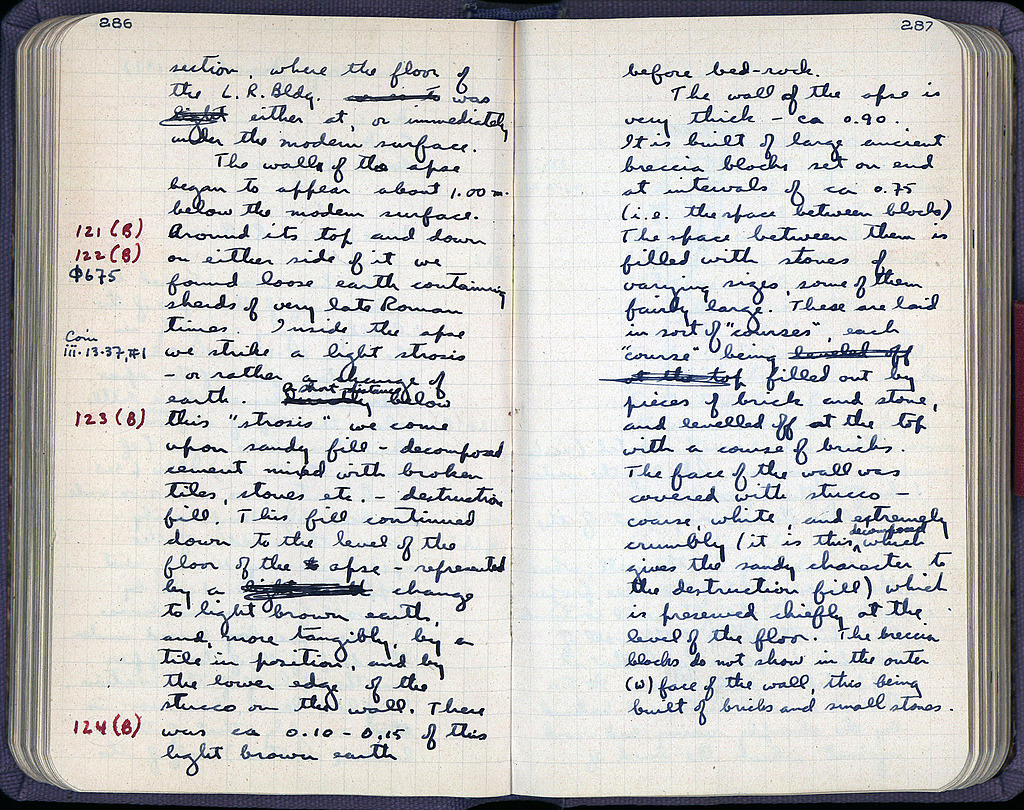 286
section, where the floor of
the L.R. Bldg. was
light either at, or immediately
under the modern surface.
The walls of the apse
began to appear about 1.00 m.
below the modern surface.
121 (B) Around its top and down
122 (B) on either side of it we
Φ675 found loose earth containing
sherds of very late Roman
times. Inside the apse
Coin
iii.13.37,#1 we strike a light strosis
– or rather a change of
earth. a short distance below
123 (B) this "strosis" we come
upon sandy fill – decomposed
cement mixed with broken
tiles, stones etc. – destruction
fill. This fill continued
down to the level of the
floor of the apse – represented
by a change
to light brown earth,
and, more tangibly, by a
tile in position, and by
the lower edge of the
stucco on the wall. There
124 (B) was ca 0.10 – 0.15 of this
light brown earth
287
before bed-rock.
The wall of the apse is
very thick – ca 0.90.
It is built of large ancient
breccia blocks set on end
at intervals of ca 0.75
(i.e. the space between blocks)
The space between them is
filled with stones of
varying sizes, some of them
fairly large. These are laid
in sort of "courses", each
"course" being leveled off
at the top filled out by
pieces of brick and stone,
and levelled off at the top
with a course of bricks.
The face of the wall was
covered with stucco –
coarse, white, and extremely
crumbly (it is this decomposed which
gives the sandy character to
the destruction fill) which
is preserved chiefly at the
level of the floor. The breccia
blocks do not show in the outer
(W) face of the wall, this being
built of bricks and small stones.